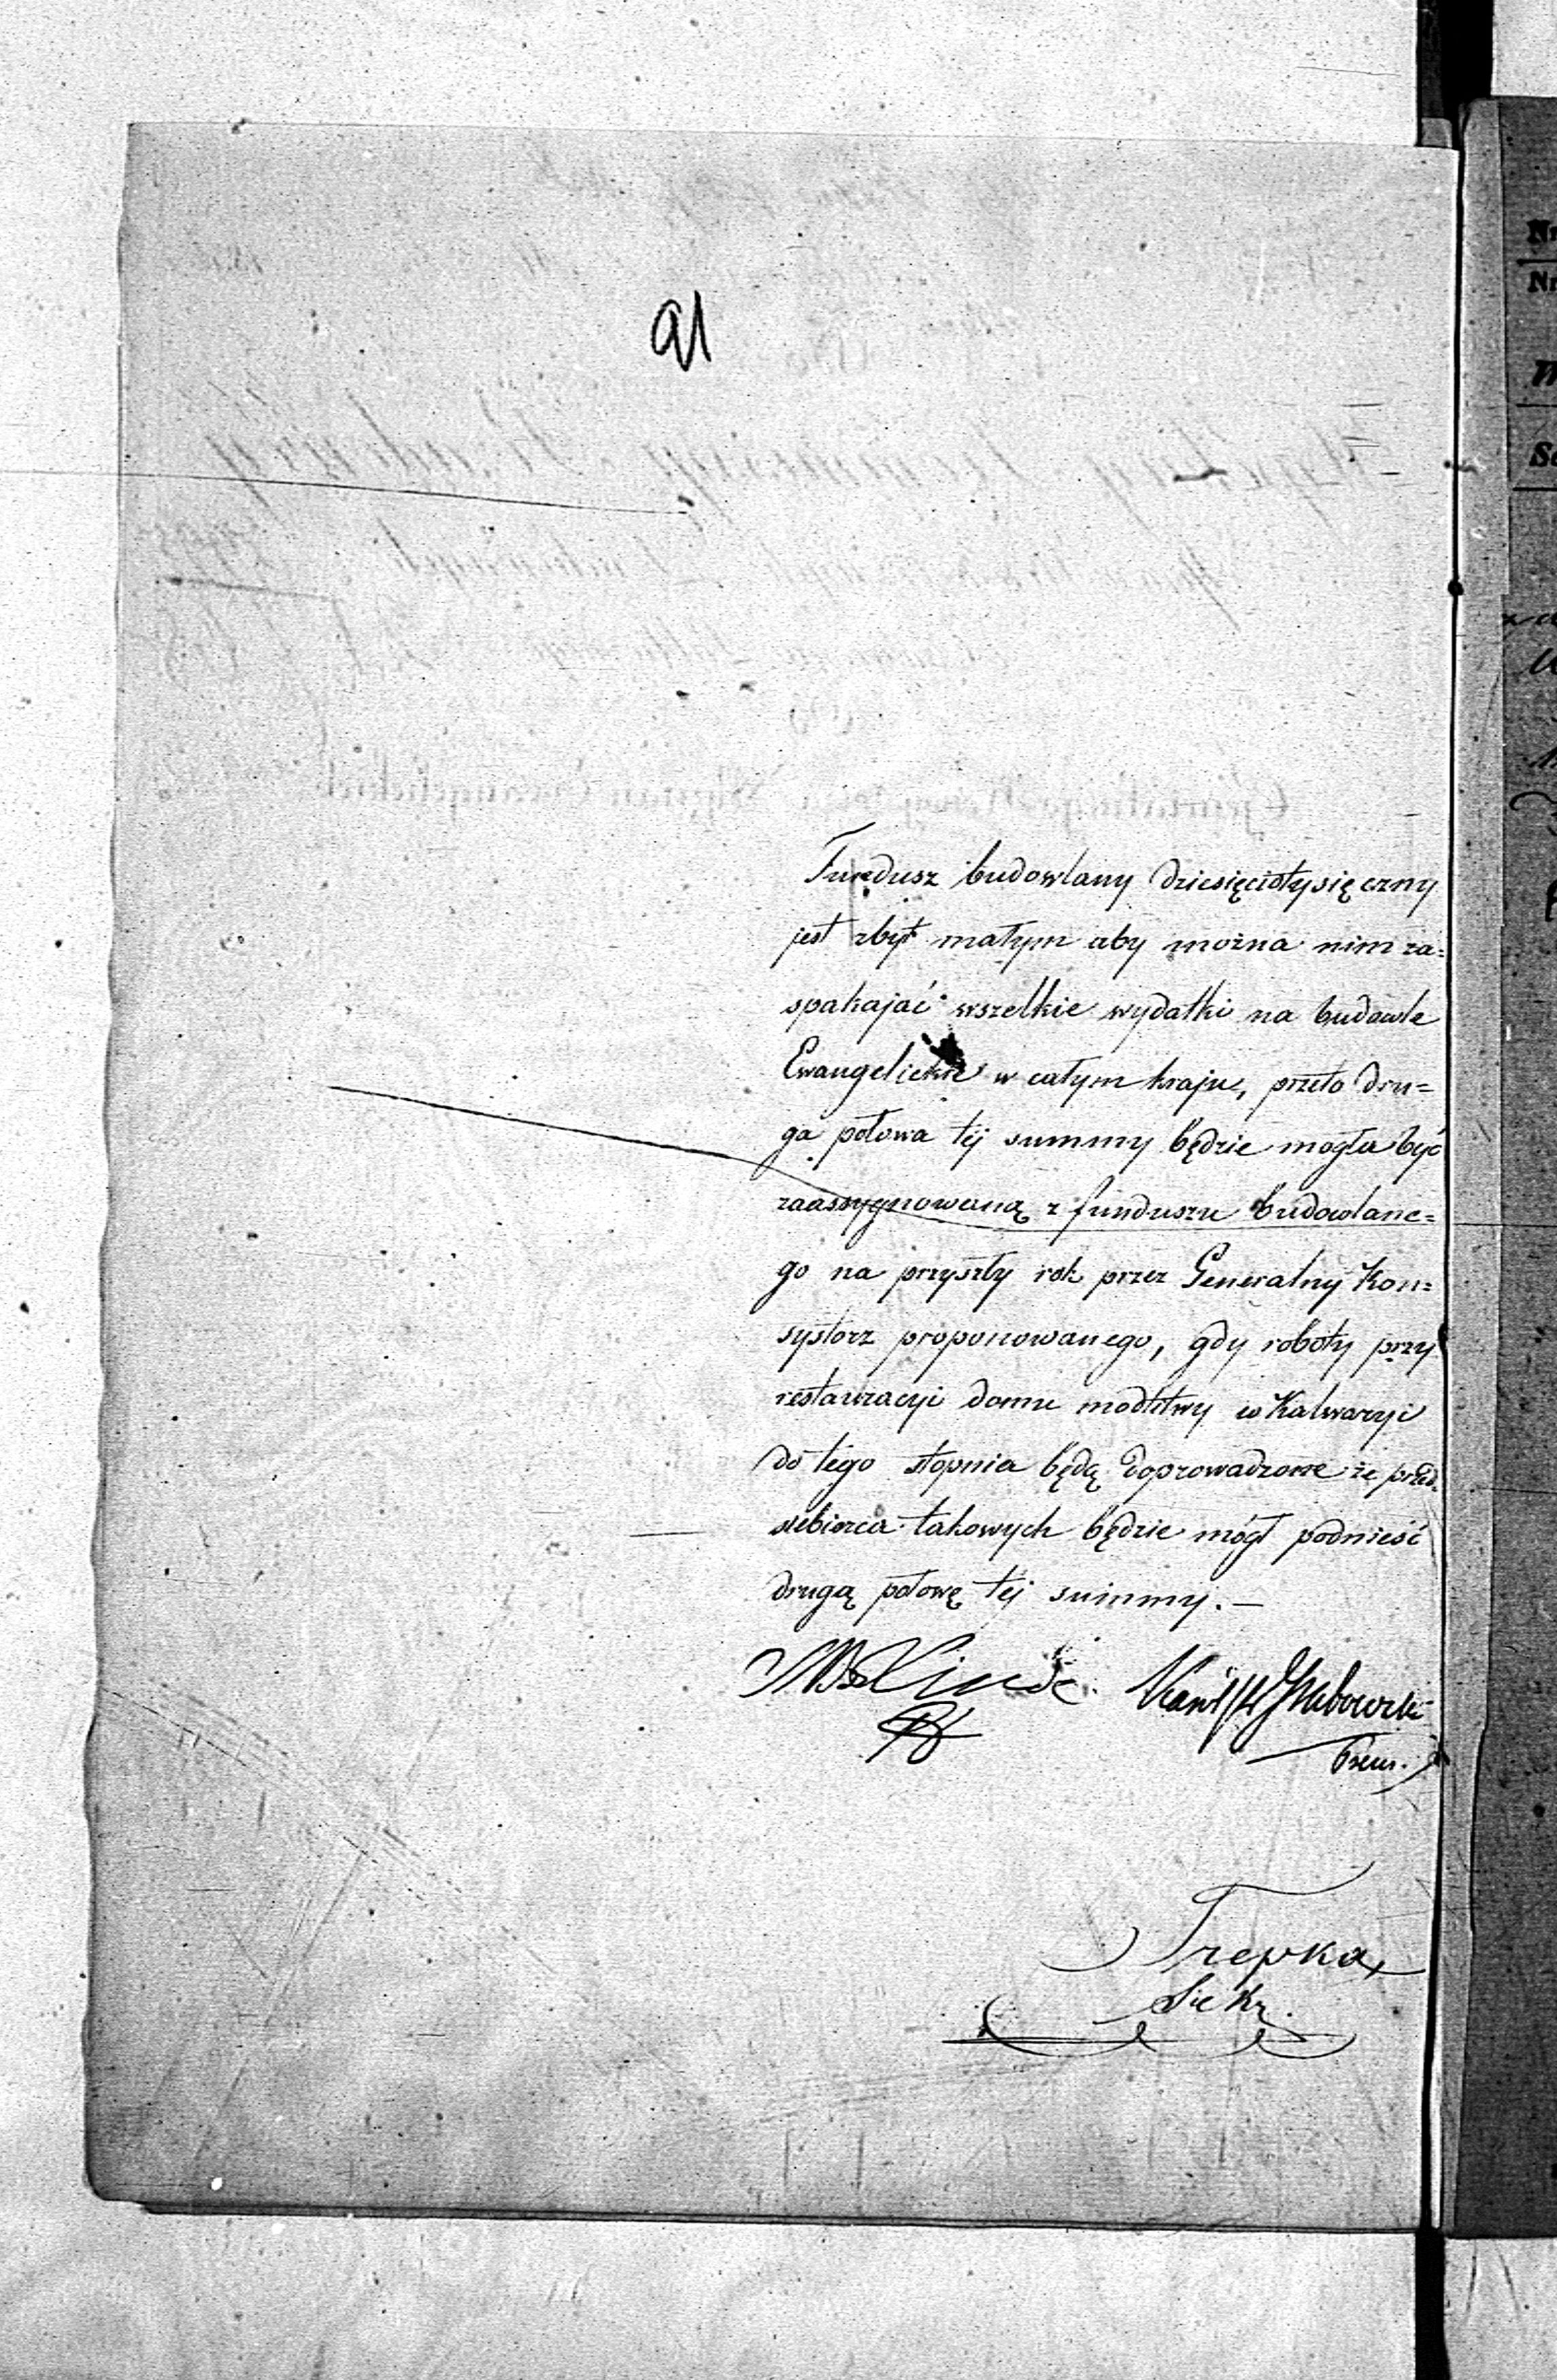 91
Fundusz budowlany dziesięciotysięczny
jest zbyt małym aby można nim za=
spakajać wszelkie wydatki na budowle
Ewangelickie w całym kraju, przeto dru=
ga połowa tej summy będzie mogła być
zaassygnowaną z funduszu budowlane=
go na przyszły rok przez Generalny Kon=
systorz proponowanego, gdy roboty przy
restauracyi domu modlitwy w Kalwaryi
do tego stopnia będą doprowadzone że przed=
siebiorca takowych będzie mógł podnieść
drugą połowę tej summy. —
Linde
Grabowski
Trepka
Sekr.
Nr
Nr